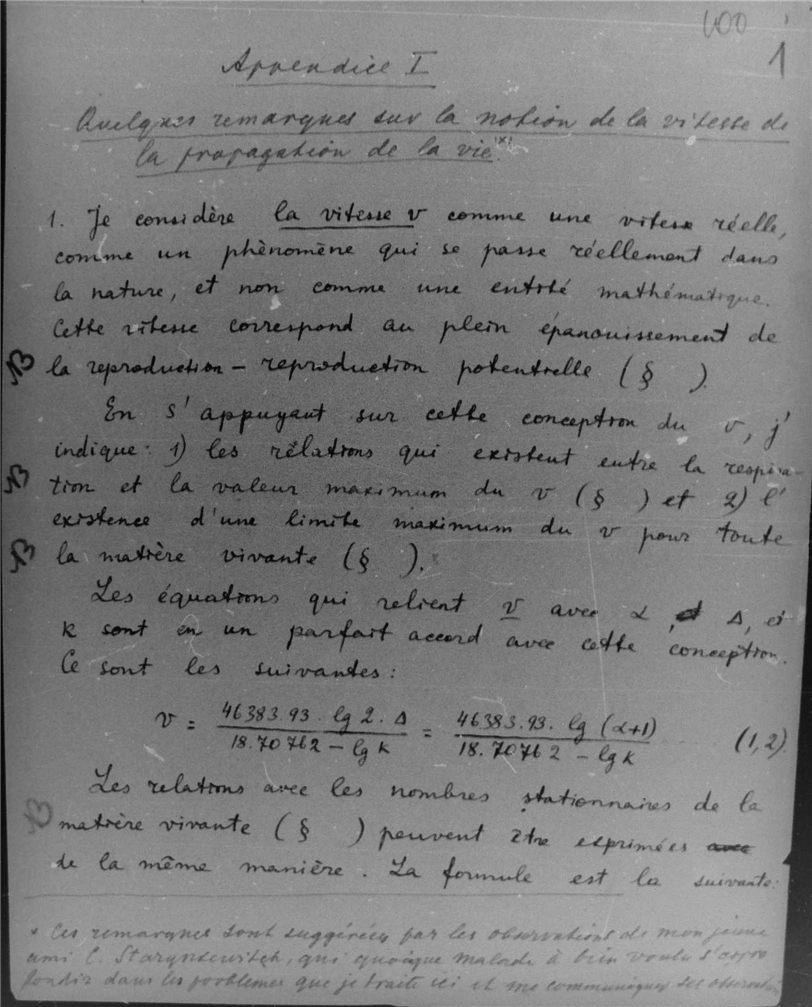 100
1
Appendice I
Quelques remarques sur la notion de la vitesse de
la propagation de la vie.*)
1. Je considère la vitesse v comme une vitesse réelle,
comme un phènomène qui se passe réellement dans
la nature, et non comme une entité mathématique.
Cette vitesse correspond au plein épanouissement de
NB la reproduction – reproduction potentielle (§ ).
En s'appuyant sur cette conception du v, j'
indique: 1) les rélations qui existent entre la respira-
NB tion et la valeur maximum du v (§ ) et 2) l'
existence d'une limite maximum du v pour toute
NB la matière vivante (§ ).
Les équations qui relient v avec α, Δ, et
k sont en un parfait accord avec cette conception.
Ce sont les suivantes:
v = 46383.93. lg 2. Δ / 18.70762 – lg k = 46383.93. lg (α+1) / 18.70762 – lg k (1,2)
Les relations avec les nombres stationnaires de la
NB matière vivante (§ ) peuvent être exprimées avec
de la même manière. La formule est la suivante:
* Ces remarques sont suggérées par les observations de mon jeune
ami C. Starynkevitch, qui quoique malade à bien voulu s'appro
fondir dans les problemes que je traite ici et me communiquer ses